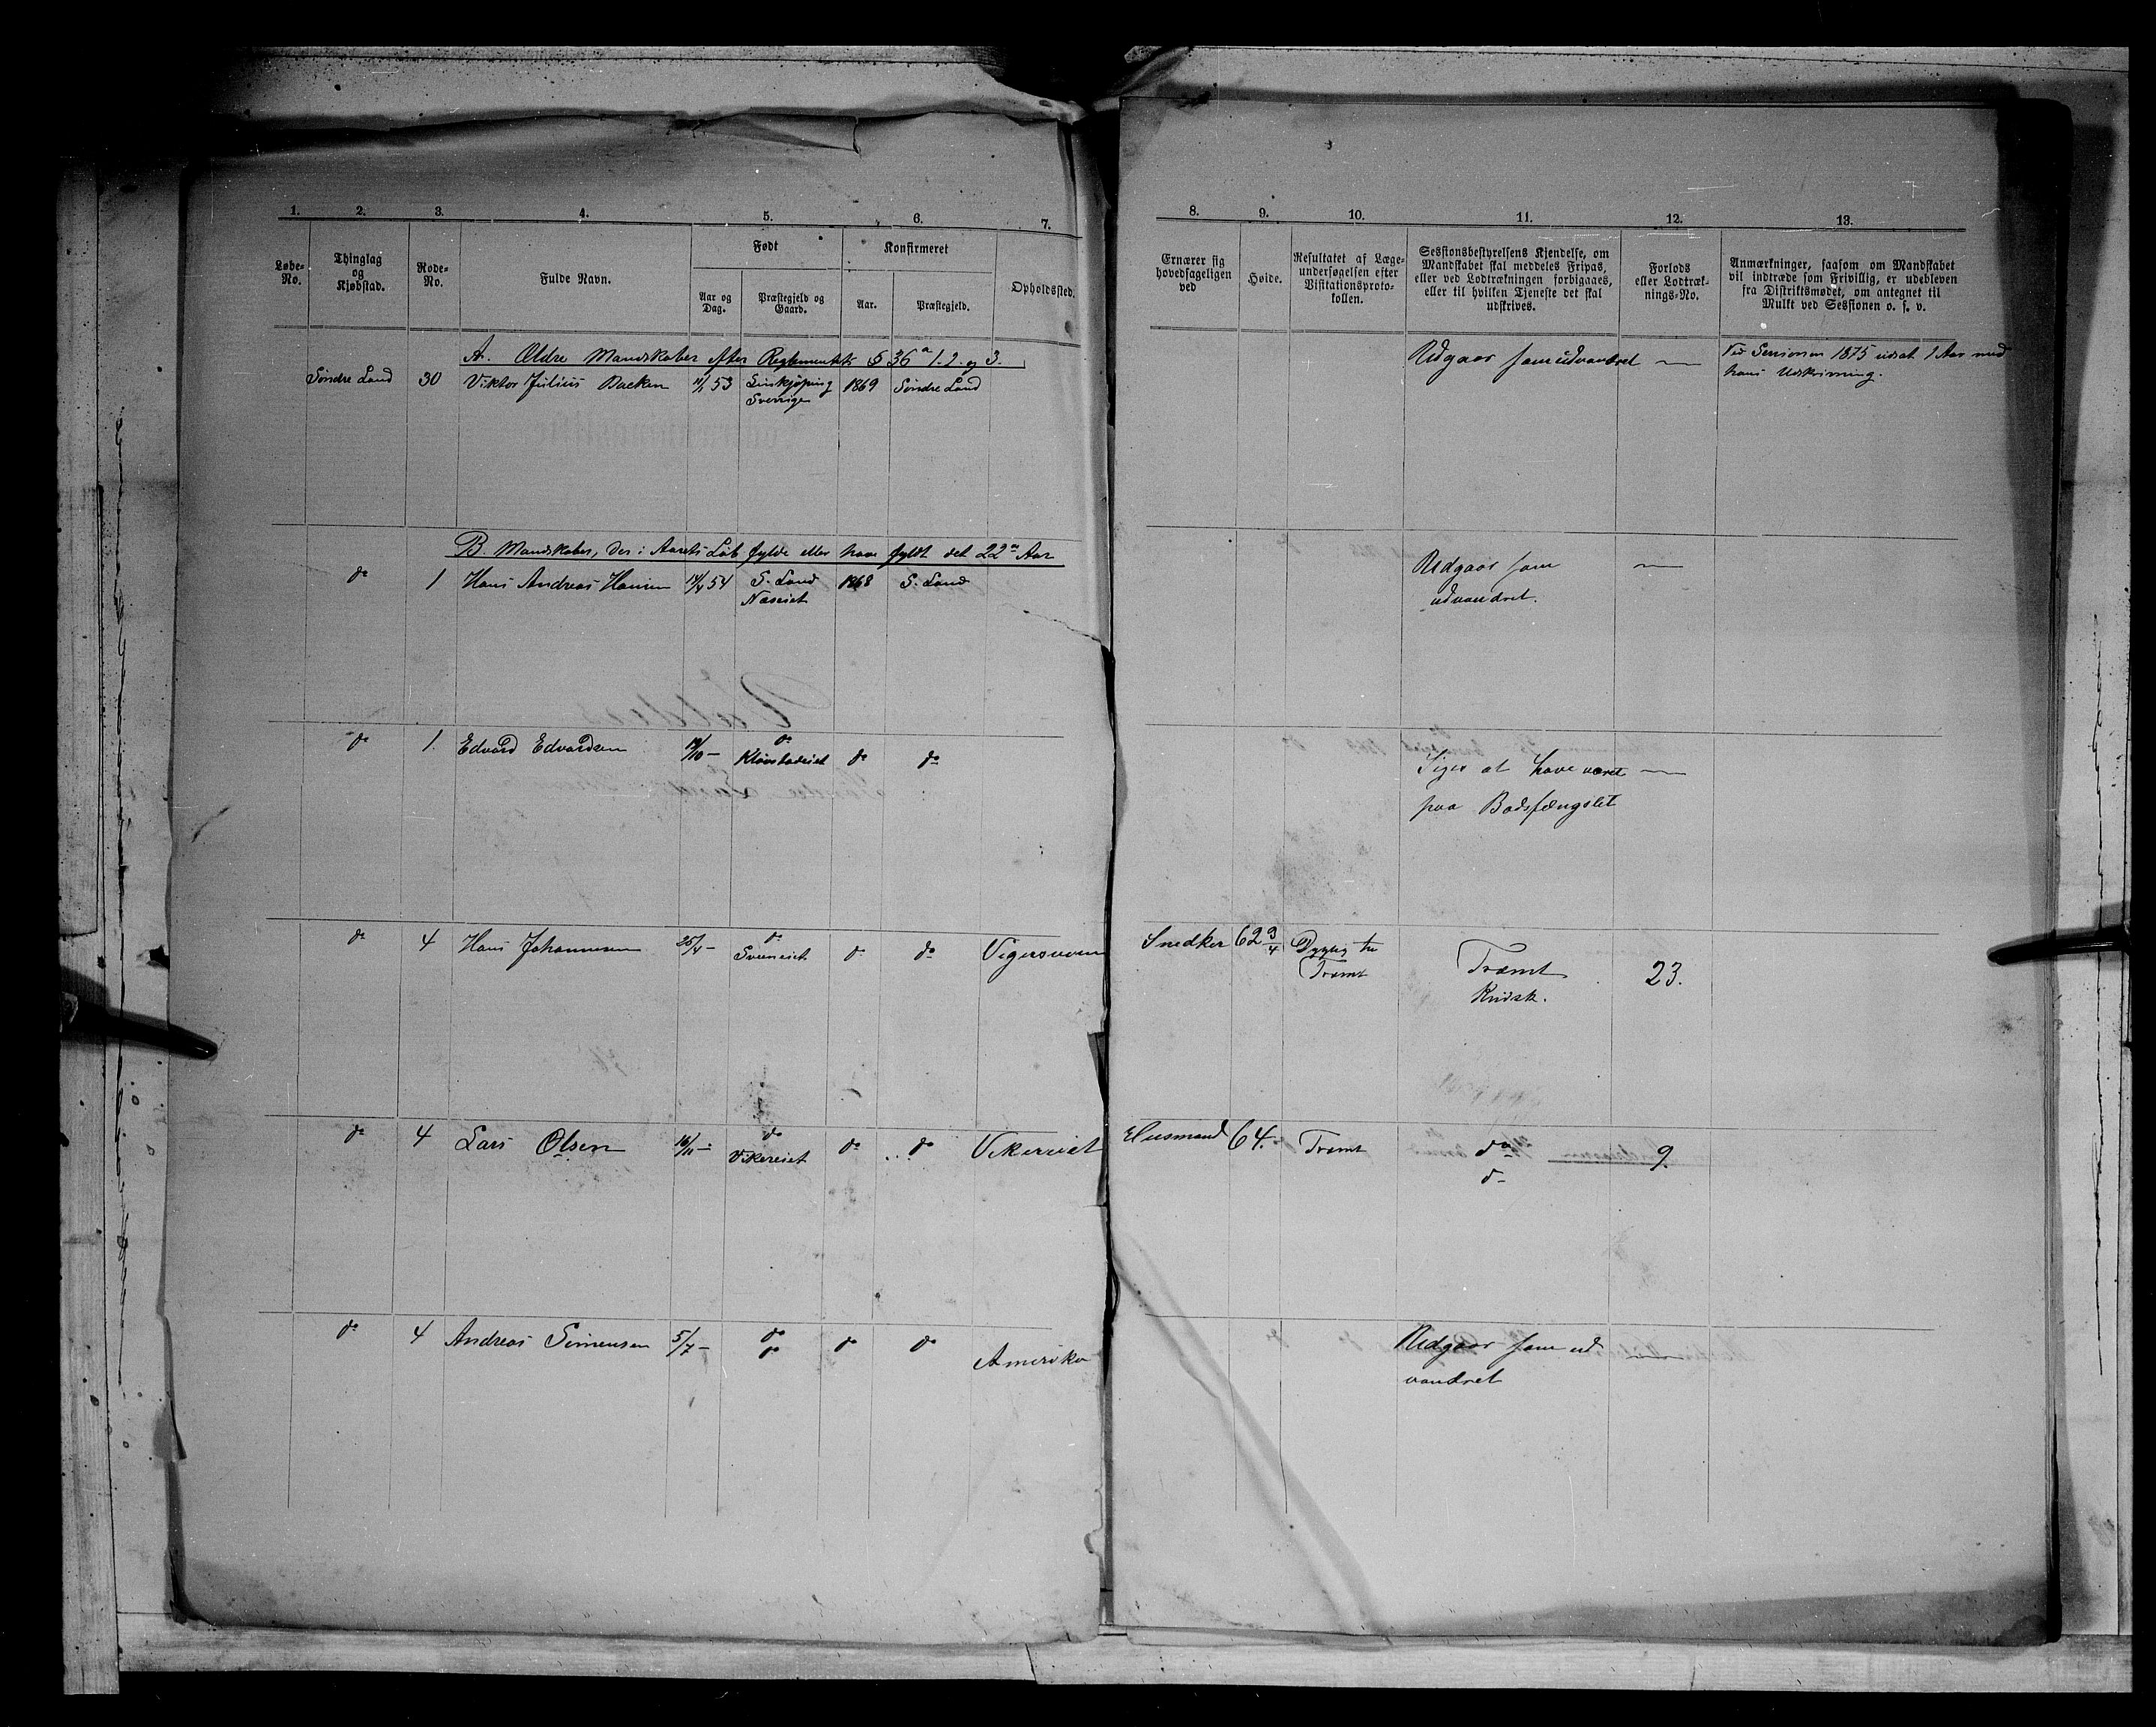 1. 2. 3. 4. 5. 6. 7.
Løbe-No. Thinglag og Kjøbstad. Rode-No. Fulde Navn. Født Konfirmeret Opholdssted.
Aar og Dag. Præstegjeld og Gaard. Aar. Præstegjeld.
A. Ældre Mandskaber efter Reglementets § 36 a 1. 2. og 3.
Søndre Land 30 Viktor Julius Backen 11/1 53 Linkjöping 1869 Søndre Land
Sverrige
B. Mandskaber, der i Aarets Løb fylde eller have fyldt det 22de Aar
do 1 Hans Andreas Hansen 14/4 54 S. Land 1868 S. Land
Næseiet
do 1. Edvard Edvardsen 19/10 — do
Klovstadeiet do do
do 4 Hans Johannesen 25/4 — do
Sveneiet do do Vigersveen
do 4 Lars Olsen 16/11 — do
Vikereiet do do Vikereiet
do 4 Andreas Simensen 5/7 — do do do
do
Amerika
8. 9. 10. 11. 12. 13.
Ernærer sig hovedsageligen ved
Høide.
Resultatet af Læge-
undersøgelsen efter
Visitationsproto-
kollen.
Sessionsbestyrelsens Kjendelse, om
Mandskabet skal meddeles Fripas,
eller ved Lodtrækningen forbigaaes,
eller til hvilken Tjeneste det skal
udskrives.
Forlods
eller Lodtræk-
nings-No.
Anmærkninger, saasom om Mandskabet
vil indtræde som Frivillig, er udebleven
fra Distriktsmødet, om antegnet til
Mulkt ved Sessionen o. s. v.
Udgaar som udvandret — Ved Sessionen 1875 udsat 1 Aar med
hans Udskrivning.
Udgaar som —
udvandret.
Siges at have været —
paa Bodsfængslet
Snedker 62 3/4 Dygtig til
Træmt Træmt 23.
Kudsk.
Husmand 64. Træmt do 9.
do
Udgaar som ud —
vandret